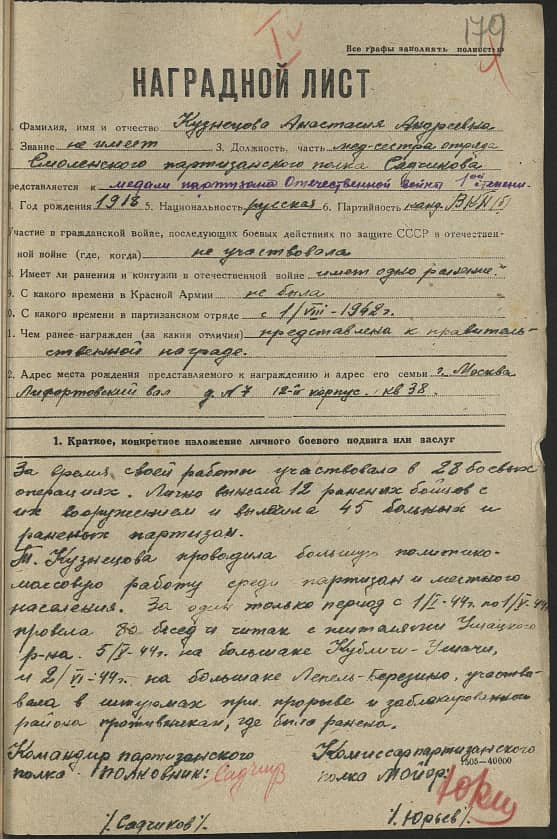 179
IV
Все графы заполнять полностью
НАГРАДНОЙ ЛИСТ
. Фамилия, имя и отчество Кузнецова Анастасия Андреевна
. Звание не имеет 3. Должность, часть мед-сестра отряда
Смоленского партизанского полка Садчикова
редставляется к медали партизана Отечественной войны 1ой степени.
. Год рождения 1918 5. Национальность русская 6. Партийность канд. ВКП(б)
Участие в гражданской войне, последующих боевых действиях по защите СССР и отечествен-
ной войне (где, когда) не участвовала
8. Имеет ли ранения и контузии в отечественной войне имеет одно ранение.
9. С какого времени в Красной Армии не была
0. С какого времени в партизанском отряде с 1/VIII-1942г.
1. Чем ранее награжден (за какия отличия) представлена к правитель-
ственной награде.
2. Адрес места рождения представляемого к награждению и адрес его семьи г. Москва
Лифортовский вал д. №7 12-й корпус. кв 38.
1. Краткое, конкретное изложение личного боевого подвига или заслуг
За время своей работы участвовала в 28 боевых
операциях. Лично вынесла 12 раненых бойцов с
их вооружением и вылечила 45 больных и
раненых партизан.
Т. Кузнецова проводила большую политико-
массовую работу среди партизан и местного
населения. За один только период с 1/I-44г. по 1/V-44г.
провела 80 бесед и читак с жителями Ушацкого
р-на. 5/V-44г. на большаке Кубличи-Ушачи,
и 2/VI-44г. на большаке Лепель-Березино, участво-
вала в штурмах при прорыве и заблокированном
района противником, где была ранена.
Командир партизанского
полка полковник: Садчиков
/Садчиков/.
Комиссар партизанского
1505-40000
полка майор: Юрьев
/Юрьев/.